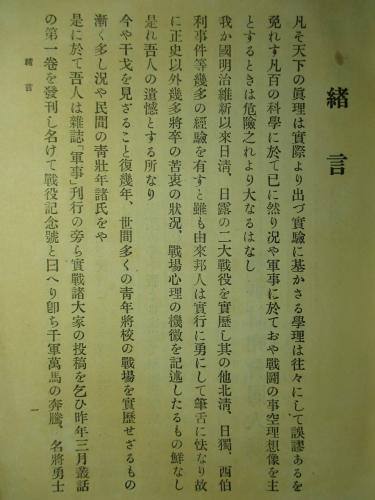 緒言
凡そ天下の眞理は實際より出づ實驗に基かさる學理は往々にして誤謬あるを
免れす凡百の科學に於て已に然り况や軍事に於ておや戰鬪の事空理想像を主
とするときは危險之れより大なるはなし
我か國明治維新以來日淸、日露の二大戰役を實歷し其の他北淸、日獨、西伯
利事件等幾多の經驗を有すと雖も由來邦人は實行に勇にして筆舌に怯なり故
に正史以外幾多將卒の苦衷の狀況、戰場心理の機微を記述したるもの鮮なし
是れ吾人の遺憾とする所なり
今や干戈を見ざること復幾年、世間多くの靑年將校の戰場を實歷せざるもの
漸く多し況や民間の靑壯年諸氏をや
是に於て吾人は雜誌「軍事」刊行の旁ら實戰諸大家の投稿を乞ひ昨年三月叢話
の第一卷を發刊し名けて戰役記念號と曰へり卽ち千軍萬馬の奔騰、名將勇士
緒言
一